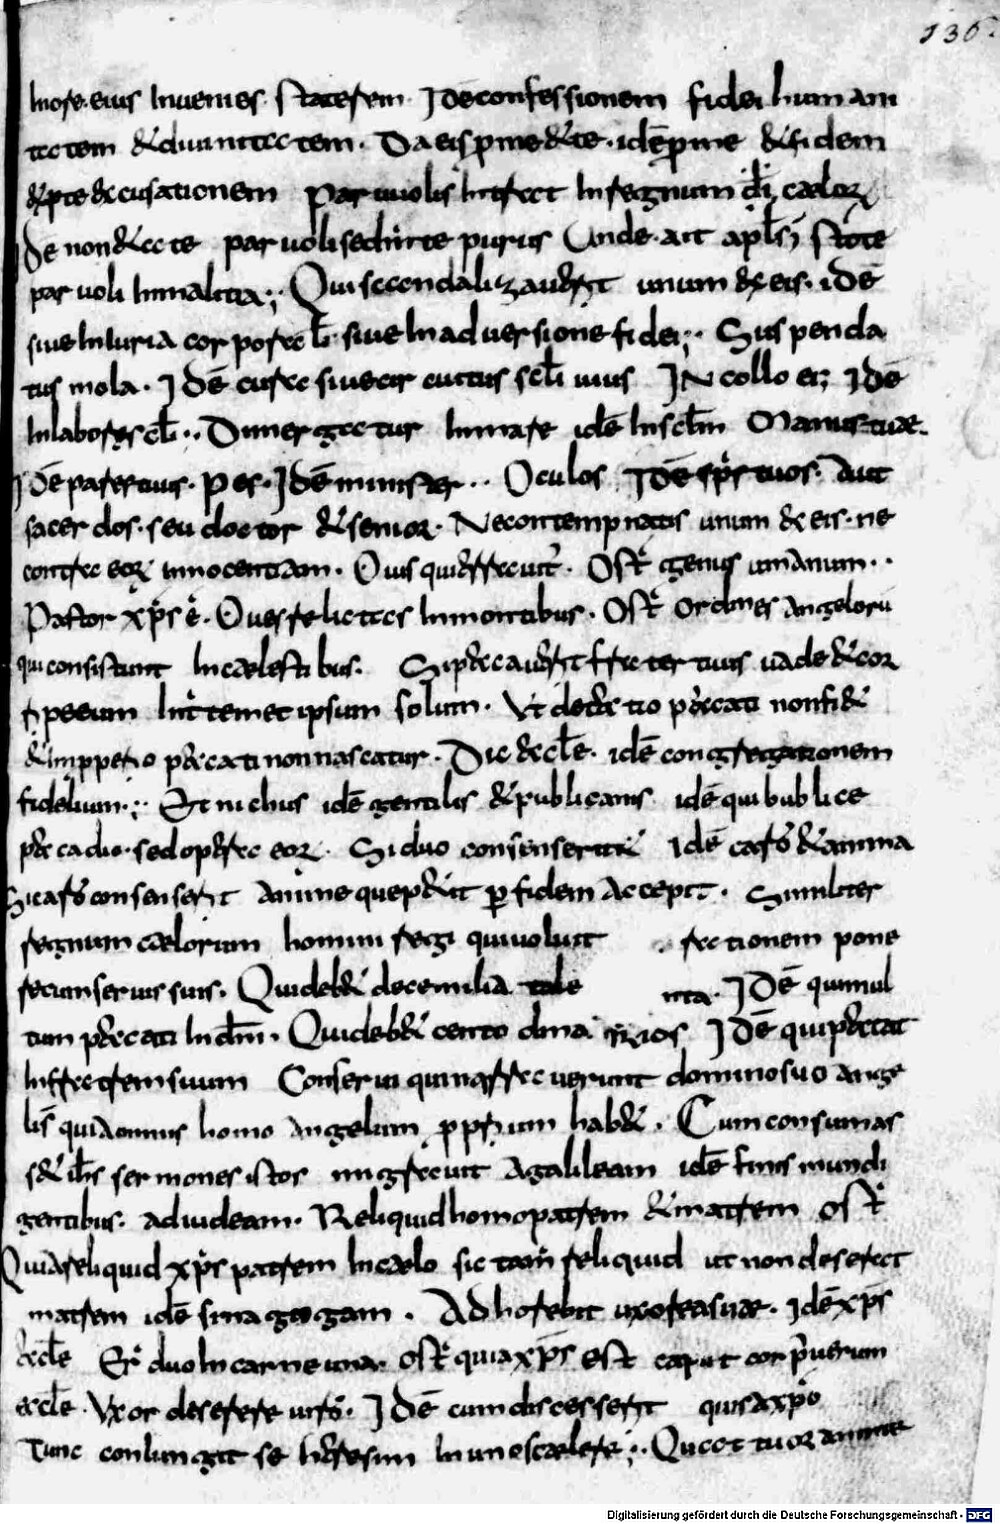 136.
In ore eius Inuenies staterem Idē confessionem fidei humani
tatem & diuinitatem. Da eis p me & te. idē p me & fidem
& p te accusationem Paruolis intrare In regnum di cęlor
De non &ate paruoli sed uirtute purus Unde ait aplsi stote
paruoli In malitia;· Qui scandalizauerit unum ex eis. idē
siue In iuria corporal. siue In aduersione fidei;· Suspenda
tus mola. Idē cura siue circuitus scli uius IN collo ei; Idē
In labores scli·. Dimergatur In mare idē In sclm Manus tuae
Idē pater tuus. Pes. Idē minister·. Oculos Idē sprs tuos. Aut
sacerdos. seu doctor & senior. Ne contempnatis unum ex eis. ne
contra eor innocentiam. Ouis qui errauit. Ost genus umanum·.
Pastor xps ē. Oues relictas In montibus. Ost ordines angeloru
qui consistunt In caelestibus. Si peccauerit frater tuus uade & cor
ripe eum Int temet ipsum solum. Ut detectio peccati non fi&
& impperio peccati non nascatur. Dic aecle. idē congregationem
fidelium·; Et nichus idē gentilis & publicanus idē qui bublice
peccadio. sed opera eor. Si duo consenserint Idē caro & anima
Si caro consenserit anime que petit p fidem accepit. Simliter
regnum caelorum homini regi qui uoluit rationem pone
recum seruis suis. Qui deb& decemilia tale nta. Idē qui mul
tum peccati In dm. Qui deb& cento dinarios Idē qui peccat
In fratrem suum Conserui qui narrauerunt domino suo ange
lis quia omnis homo angelum pprium hab&. Cum consumas
s& ihs sermones istos migrauit a galileam idē finis mundi
gentibus. ad uideam. Reliquid homo patrem & matrem ost
Quia reliquid xps patrem In caelo sic tam reliquid ut non deserat
matrem idē sinagogam. Adherebit uxore a suae. Idē xps
aecle Er duo In carne una. Ost quia xps est caput corp uerum
aecle. Uxor deserere uiro. Idē cum discesserit quis a xpo
Tunc coniungit se heresim In uno scaelere;· Quattuor anime
Digitalisierung gefördert durch die Deutsche Forschungsgemeinschaft - DFG